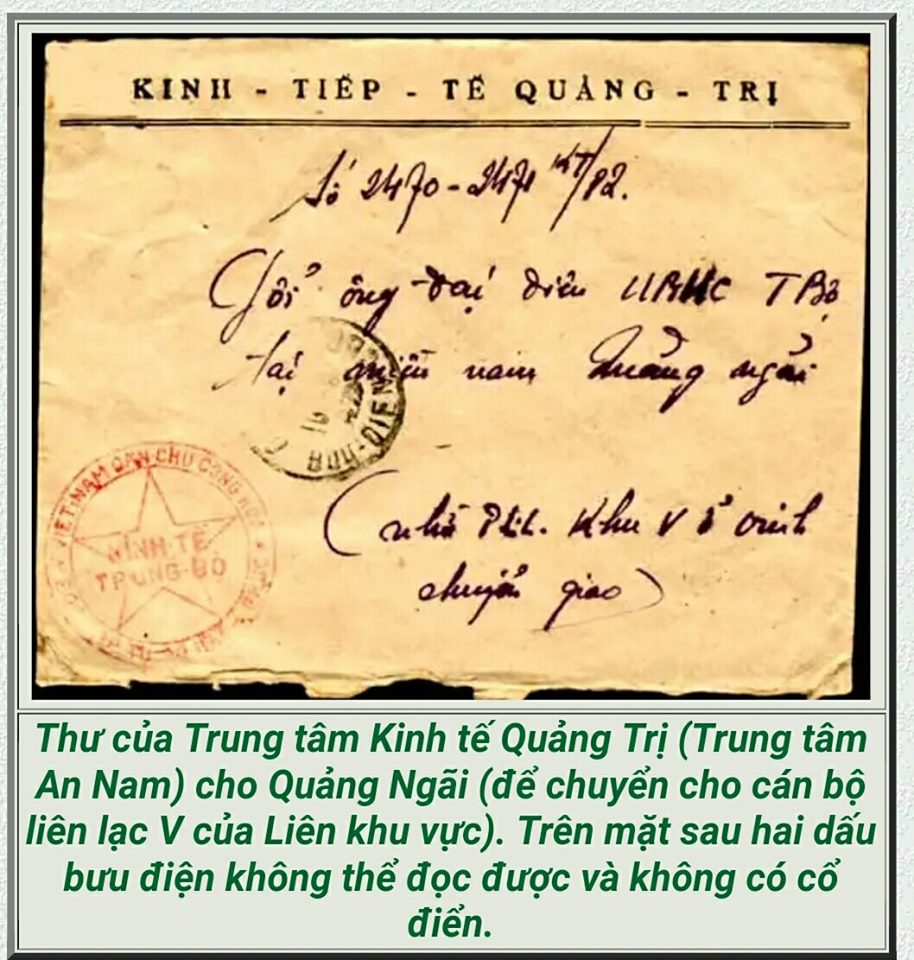 KINH - TIẾP - TẾ QUẢNG - TRỊ
Số 2470-2471 KT/P2.
Gởi ông đại diên UBHC TBộ
tại miền nam Quảng ngãi
BUU-DIEN
VIET-NAM DAN CHU CONG HOA
KINH TẾ
TRUNG-BỘ
(nhờ Khu V ở vinh
chuyển giao)
Thư của Trung tâm Kinh tế Quảng Trị (Trung tâm
An Nam) cho Quảng Ngãi (để chuyển cho cán bộ
liên lạc V của Liên khu vực). Trên mặt sau hai dấu
bưu điện không thể đọc được và không có cổ
điển.